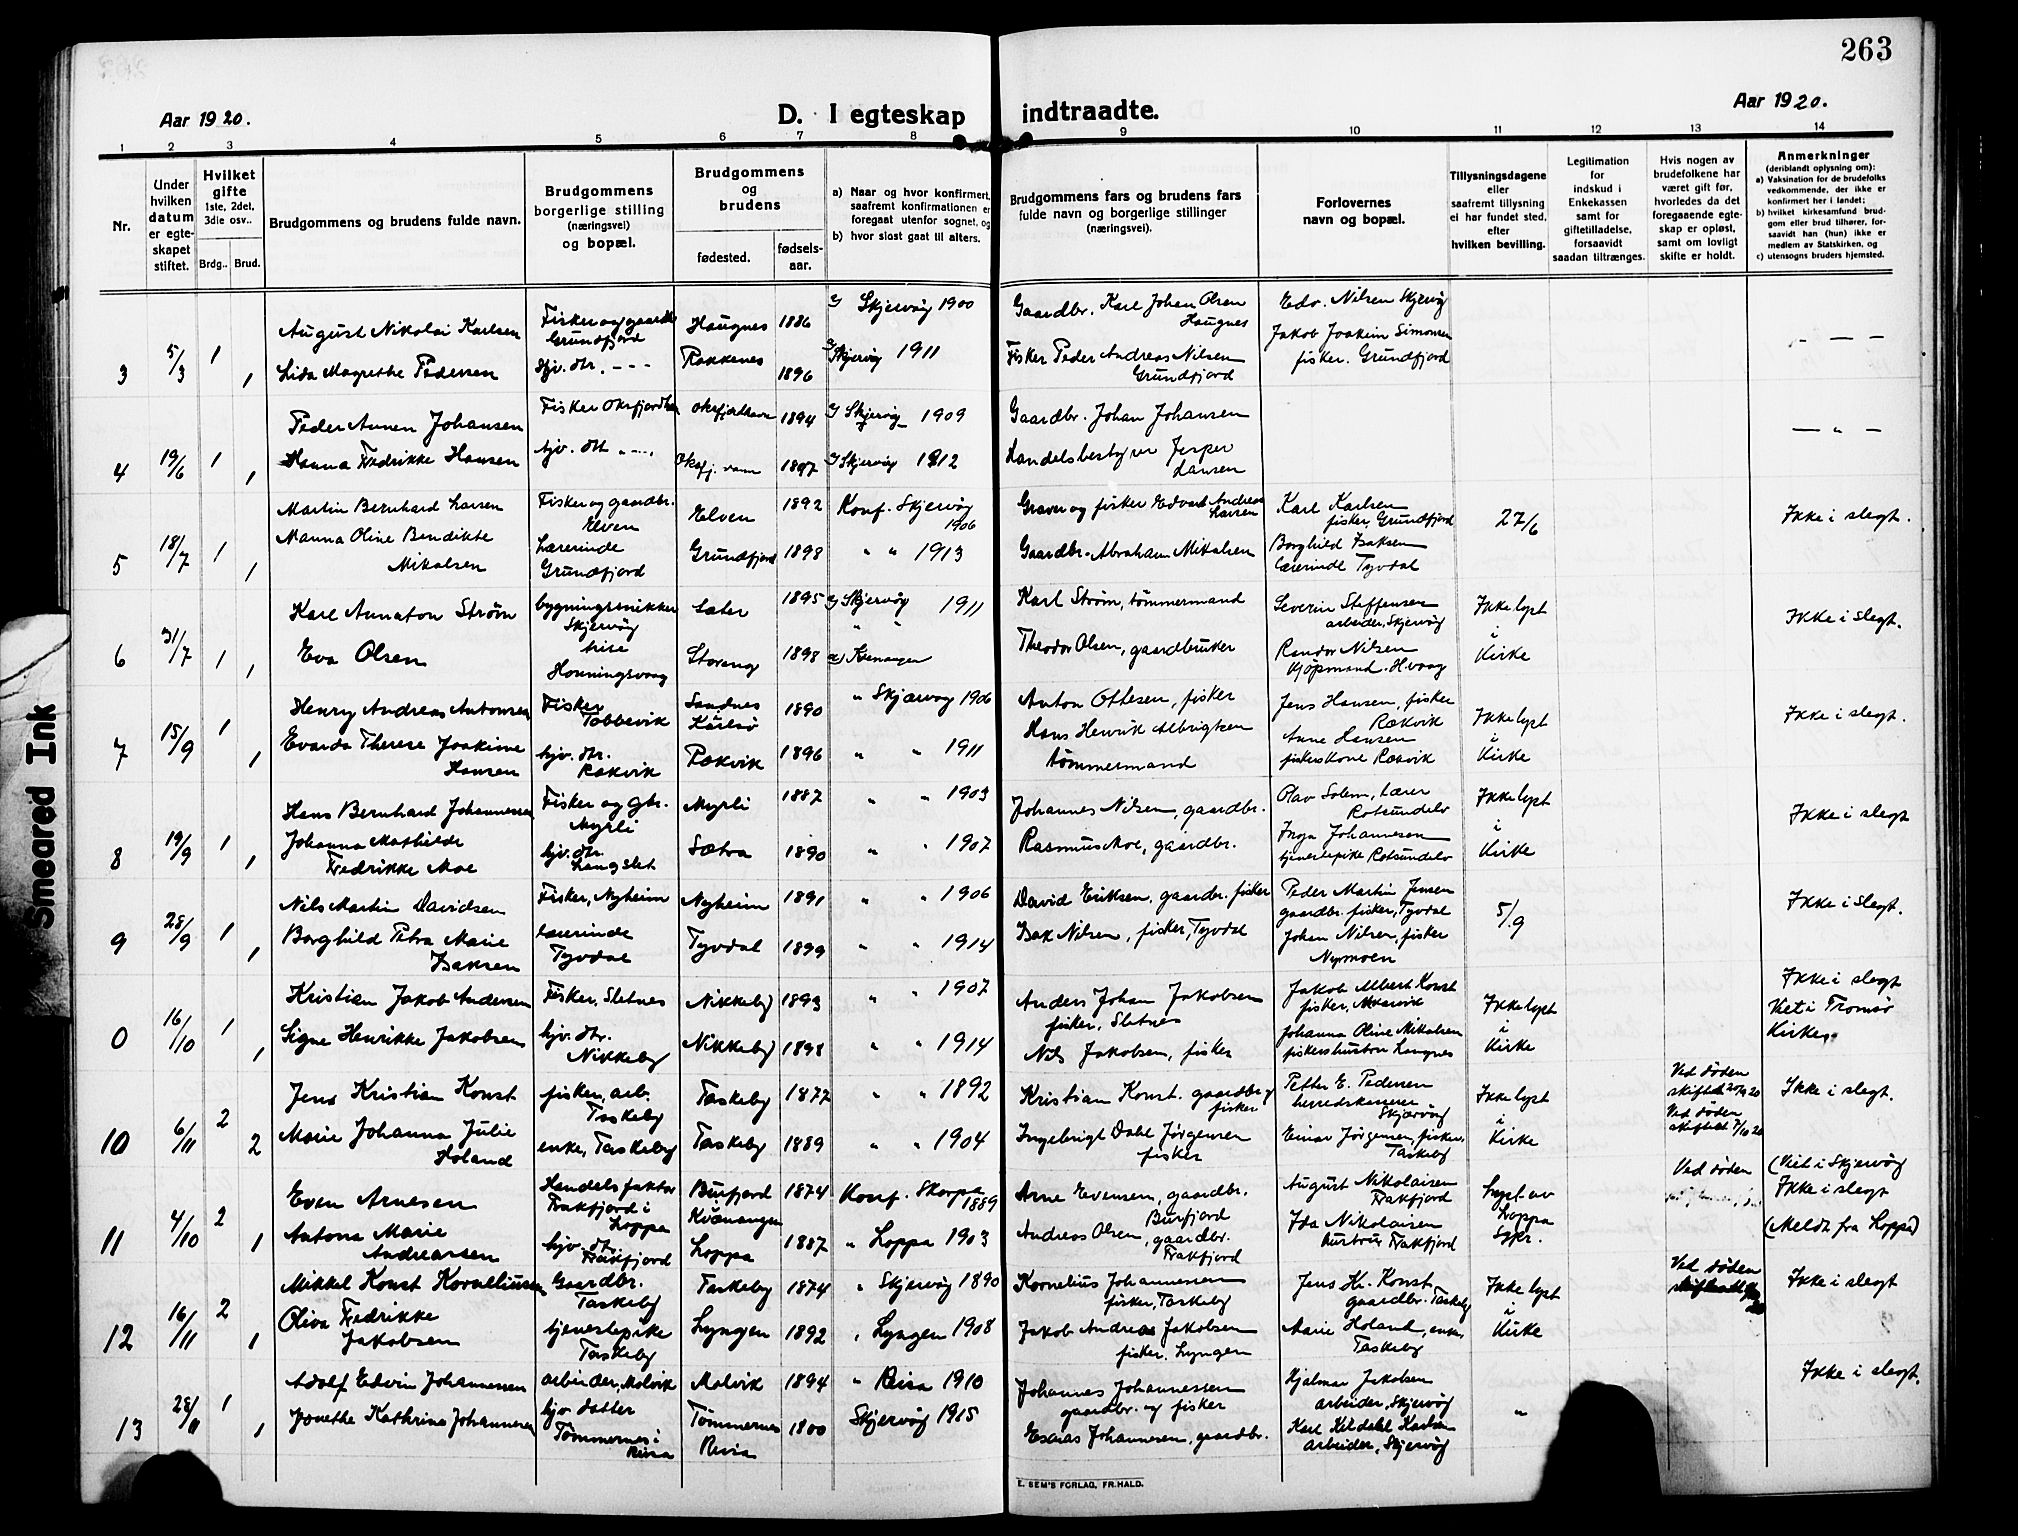 263
Aar 1920.
D. I egteskap indtraadte.
Aar 1920.
1 2 3 4 5 6 7 8 9 10 11 12 13 14
Nr.
Under hvilken datum er egteskapet stiftet.
Hvilket gifte 1ste, 2det, 3die osv..
Brdg.. Brud.
Brudgommens og brudens fulde navn.
Brudgommens borgerlige stilling (næringsvei) og bopæl.
Brudgommens og brudens
fødested.
fødsels-aar.
a) Naar og hvor konfirmert, saafremt konfirmationen er foregaat utenfor sognet, og
b) hvor sidst gaat til alters.
Brudgommens fars og brudens fars fulde navn og borgerlige stillinger (næringsvei).
Forlovernes navn og bopæl.
Tillysningsdagene eller saafremt tillysning ei har fundet sted, efter hvilken bevilling.
Legitimation for indskud i Enkekassen samt for giftetilladelse, forsaavidt saadan tiltrænges.
Hvis nogen av brudefolkene har været gift før, hvorledes da det foregaaende egteskap er opløst, samt om lovligt skifte er holdt.
Anmerkninger (deriblandt oplysning om):
a) Vaksination for de brudefolks vedkommende, der ikke er konfirmert her i landet;
b) hvilket kirkesamfund brudgom eller brud tilhører, forsaavidt han (hun) ikke er medlem av Statskirken, og
c) utensogns bruders hjemsted.
3 5/3 1 August Nikolai Karlsen Fisker og gaardbr Grundfjord Haugnes 1886 Skjervøy 1900 Gaardbr. Karl Johan Olsen Haugnes Edv. Nilsen Skjervøy
1 Lida Magrethe Pedersen hjv. dtr. Rakkenes 1896 Skjervøy 1911 Fisker Peder Andreas Nilsen Grundfjord Jakob Joakim Simonsen fisker. Grundfjord
4 19/6 1 Peder Annen Johansen Fisker Oksfjordhavn Oksfjordhavn 1894 Skjervøy 1909 Gaardbr. Johan Johansen
1 Hanna Fredrikke Hansen hjv. dtr 1897 Skjervøy 1912 Handelsbestyrer Jesper Hansen
5 18/7 1 Martin Bernhard Larsen Fisker og gaardbr. Elven Elven 1892 Konf. Skjervøy 1906 Graver og fisker Edvart Andreas Larsen Karl Karlsen fisker, Grundfjord 27/6 Ikke i slegt.
1 Manna Oline Bendikte Mikalsen Lærerinde Grundfjord Grundfjord 1898 " " 1913 Gaardbr. Abraham Mikalsen Borghild Isaksen lærerinde Tyvdal
6 31/7 1 Karl Annaton Strøm bygningssnikker Skjervøy Sæter 1895 Skjervøy 1911 Karl Strøm, tømmermand Severin Steffensen arbeider, Skjervøy Ikke lyst i Kirke Ikke i slegt.
1 Eva Olsen Honningsvaag Storeng 1898 Theodor Olsen, gaardbruker Randor Nilsen kjøpmand. H.vaag
7 15/9 1 Henry Andreas Antonsen Fisker Tobbevik Sandnes Karlsø 1890 " Skjærvøy 1906 Anton Ottesen, fisker Jens Hansen, fisker Rækvik Ikke lyst i Kirke Ikke i slegt.
1 Evarda Therese Joakime Hansen hjv. dtr. Rakvik Rækvik 1896 " " 1911 Hans Henrik Albrigtsen tømmermand Anne Hansen fiskerkone Rækvik
8 19/9 1 Hans Bernhard Johannessen Fisker og gbr. Myrli Myrli 1887 " " 1903 Johannes Nilsen, gaardbr. Olav Solem, Lærer Rotsundelv Ikke lyst i Kirke Ikke i slegt
1 Johanna Mathilde Fredrikke Moe hjv. dtr. Langslet Sætra 1890 " " 1907 Rasmus Moe, gaardbr. Inga Johannesen tjenestepike Rotsundelv
9 28/9 1 Nils Martin Davidsen Fisker, Nyheim Nyheim 1891 " " 1906 David Eriksen, gaardbr. fisker Peder Martin Jensen gaardbr. fisker, Tyvdal 5/9 Ikke i slegt.
1 Borghild Petra Marie Isaksen Lærerinde Tyvdal Tyvdal 1899 " " 1914 Isak Nilsen, fisker, Tyvdal Johan Nilsen, fisker Nymoen
0 16/10 1 Kristian Jakob Andersen Fisker, Sletnes Nikkeby 1893 " " 1907 Anders Johan Jakobsen fisker, Sletnes Jakob Albert Konst fisker, Ikke lyst i Kirke Ikke i slegt Viet i Tromsø Kirke.
1 Signe Henrikke Jakobsen hjv. dtr. Nikkeby Nikkeby 1898 " " 1914 Nils Jakobsen, fisker Johanna Oline Mikalsen fiskershustru Langnes
10 6/11 2 Jens Kristian Konst fisker, arb. Taskeby Taskeby 1877 " " 1892 Kristian Konst. gaardbr og fisker Petter E. Pedersen herredskasserer Skjærvøy Ikke lyst i Kirke Ved døden Ikke i slegt.
2 Marie Johanna Julie Holand enke, Taskeby Taskeby 1889 " " 1904 Ingebrigt Dahl Jørgensen fisker Einar Jørgensen, fisker. Taskeby Ved døden skiftet 7/10 20
11 4/10 2 Even Arnesen Handelsfaktor Frakfjord i Loppa Burfjord Kvænangen 1874 Konf. Skorpa 1889 Arne Evensen, gaardbr. Burfjord August Nikolaisen Frakfjord Lyst av Loppa Spr. Ved døden (Viet i Skjervøy Ikke i slegt
1 Antona Marie Andreassen hjv. dtr. Frakfjord Loppa 1887 " Loppa 1903 Andreas Olsen, gaardbr. Frakfjord Ida Nikolaisen hustru Frakfjord (Meldt fra Loppa)
12 16/11 2 Mikkel Konst Korneliussen Gaardbr. Taskeby Taskeby 1874 " Skjervøy 1890 Kornelius Johannessen fisker, Taskeby Jens Kr. Konst gaardbr. Taskeby Ikke lyst i Kirke Ved døden Ikke i slegt
1 Oliva Fredrikke Jakobsen tjenestepike Taskeby Lyngen 1892 " Lyngen 1908 Jakob Andreas Jakobsen fisker. Lyngen Marie Holand, enke, Taskeby
13 28/11 1 Adolf Edvin Johannessen arbeider, Molvik Molvik 1894 " Reisa 1910 Johannes Johannessen gaardbr. og fisker Hjalmar Jakobsen arbeider, Skjervøy " Ikke i slegt.
1 Jonethe Kathrina Johannesen hjv. datter Tømmernes i Reisa Tømmernes Reisa 1800 Skjervøy 1915 Esaias Johannesen, gaardbr. Karl Kildahl Karlsen arbeider, Skjervøy
E. SEM'S FORLAG, FR.HALD.
Smeared Ink